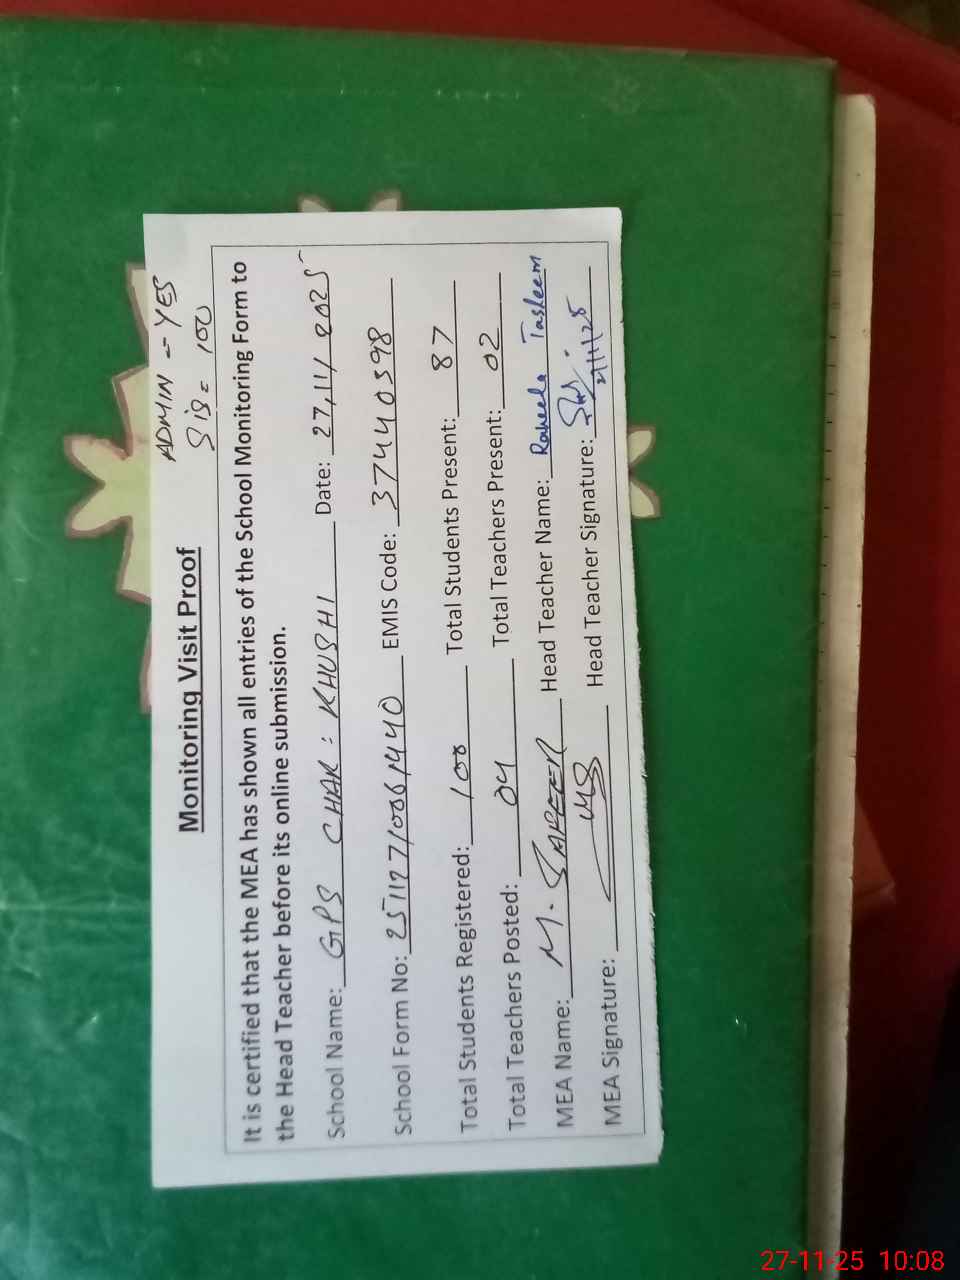 ADMIN = YES
Sis = 100
Monitoring Visit Proof
It is certified that the MEA has shown all entries of the School Monitoring Form to
the Head Teacher before its online submission.
School Name: GPS CHAK : KHUSHI Date: 27,11/2025
School Form No: EMIS Code: 37440398
Total Students Registered: 100 Total Students Present: 87
Total Teachers Posted: 04 Total Teachers Present: 02
MEA Name: M. Head Teacher Name: Raheela Tasleem
MEA Signature: Head Teacher Signature:
27-11-25 10:08